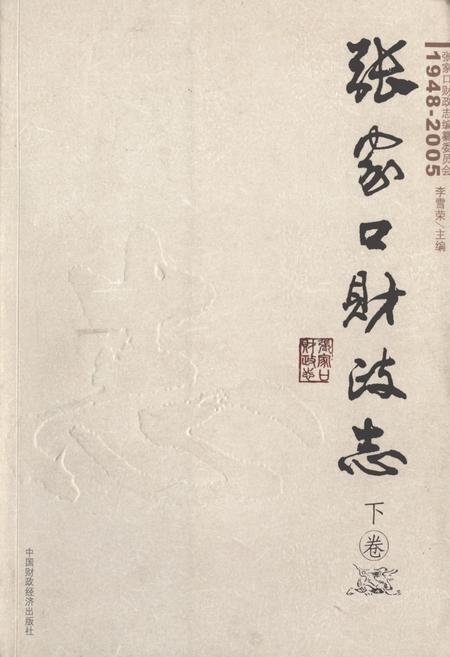 张家口财政志编纂委员会
1948-2005
李雪荣/主编
张家口财政志
张家口
财政志
下卷
中国财政经济出版社